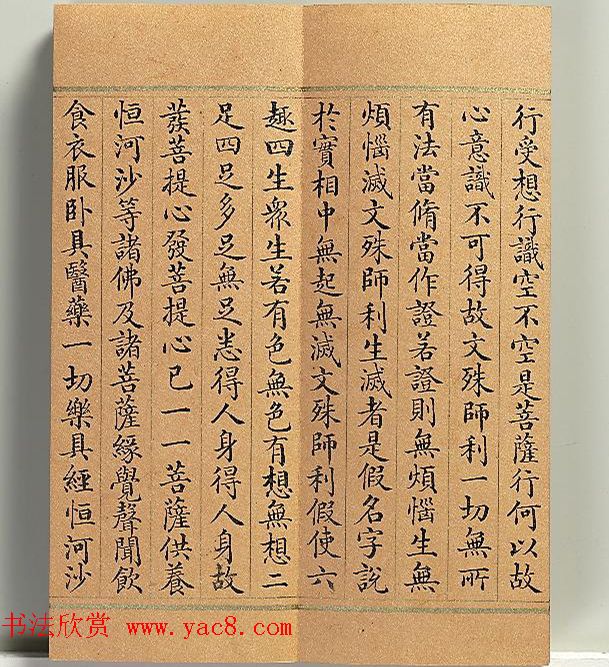 行受想行識空不空是菩薩行何以故
心意識不可得故文殊師利一切無所
有法當脩當作證若證則無煩惱生無
煩惱滅文殊師利生滅者是假名字說
於實相中無起無滅文殊師利假使六
趣四生眾生若有色無色有想無想二
足四足多足無足悉得人身得人身故
發菩提心發菩提心已一一菩薩供養
恒河沙等諸佛及諸菩薩緣覺聲聞飲
食衣服卧具醫藥一切樂具經恒河沙
书法欣赏 www.yac8.com